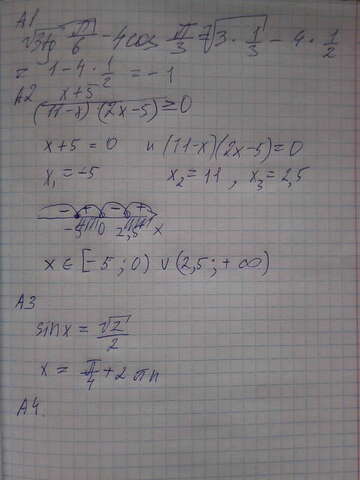 A1
√3 tg π/6 - 4cos π/3 = √3 · 1/3 - 4 · 1/2
= 1 - 4 · 1/2 = -1
A2 x+5/(11-x)(2x-5) ≥ 0
x+5 = 0 и (11-x)(2x-5)=0
x₁ = -5 x₂ = 11, x₃ = 2,5
- + - +
-5 0 2,5 x
x ∈ [-5; 0) ∨ (2,5; +∞)
A3
sinx = √2/2
x = π/4 + 2πn
A4.